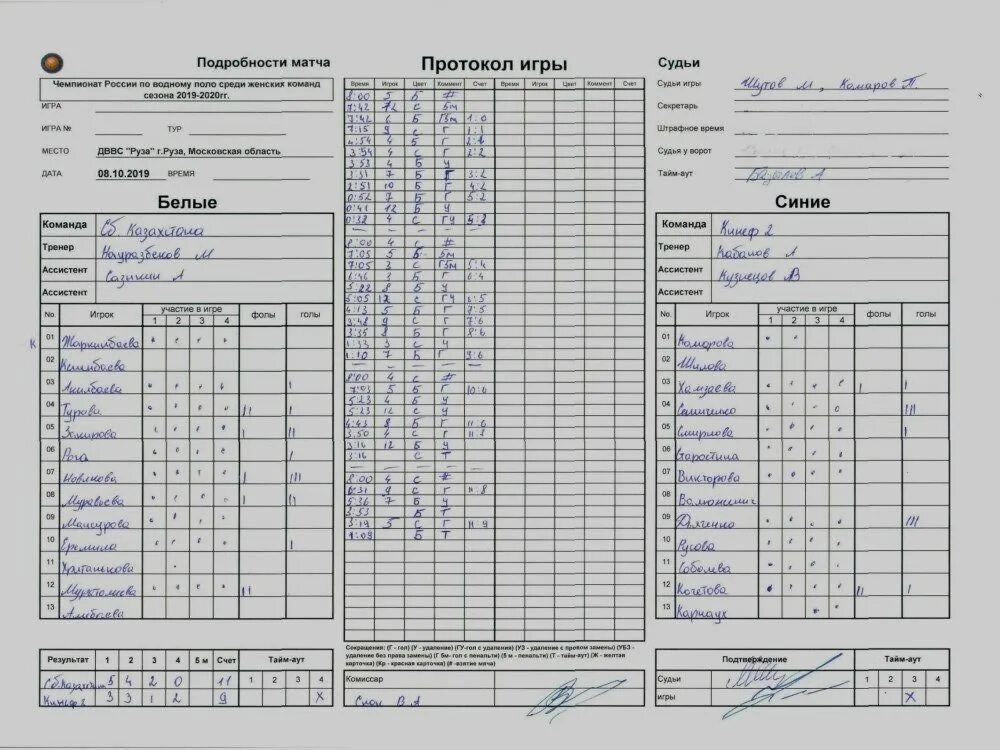 Подробности матча
Чемпионат России по водному поло среди женских команд сезона 2019-2020гг.
ИГРА
ИГРА № ТУР
МЕСТО ДВВС "Руза" г.Руза, Московская область
ДАТА 08.10.2019 ВРЕМЯ
Белые
Команда Сб. Казахстана
Тренер Науразбеков М
Ассистент Сазикин А
Ассистент
No. Игрок участие в игре фолы голы
1 2 3 4
К 01 Жаркимбаева
02 Кенжебаева
03 Акилбаева I
04 Турова II I
05 Земирова I II
06 Рога I
07 Новикова I III
08 Муравьева I II
09 Мансурова
10 Еремина I
11
12 Мурсталиева II
13
Результат 1 2 3 4 5 м Счет Тайм-аут
1 2 3 4
Сб.Казахстан 5 4 2 0 11
Кинеф 2 3 3 1 2 9 X
Протокол игры
Время Игрок Цвет Коммент Счет Время Игрок Цвет Коммент Счет
8:00 5 Б #
7:42 12 С 5м
7:42 6 Б Г5м 1:0
7:15 9 С Г 1:1
4:54 4 Б Г 2:1
3:54 4 С Г 2:2
3:53 4 Б У
3:31 7 Б Г 3:2
2:51 10 Б Г 4:2
0:52 7 Б Г 5:2
0:41 12 Б У
0:32 4 С ГУ 5:3
8:00 4 С #
7:05 5 Б 5м
7:05 3 С Г5м 5:4
6:46 3 Б Г 6:4
5:22 8 Б У
5:05 12 С ГУ 6:5
4:13 5 Б Г 7:5
3:48 9 С Г 7:6
3:35 8 Б Г 8:6
1:33 3 С У
1:10 7 Б Г 9:6
8:00 4 С #
7:03 5 Б Г 10:6
5:23 4 Б У
5:23 12 С У
4:43 8 Б Г 11:6
3:50 4 С Г 11:7
3:16 12 Б У
3:16 С Т
8:00 4 С #
6:31 9 С Г 11:8
5:36 7 Б У
3:53 Б Т
3:19 5 С Г 11:9
1:09 Б Т
Сокращения: (Г - гол) (У - удаление) (ГУ-гол с удаления) (УЗ - удаление с правом замены) (УБЗ - удаление без права замены) (Г 5м- гол с пенальти) (5 м - пенальти) (Т - тайм-аут) (Ж - желтая карточка) (Кр - красная карточка) (# -взятие мяча)
Комиссар
В.А
Судьи
Судьи игры Шутов М, Комаров П.
Секретарь
Штрафное время
Судья у ворот
Тайм-аут
Синие
Команда Кинеф 2
Тренер Кабанов А
Ассистент Кузнецов АВ
Ассистент
No. Игрок участие в игре фолы голы
1 2 3 4
01 Комарова
02 Шилова
03 Хамзаева I I
04 Семиченко III
05 Смирнова I
06 Старостина
07 Викторова
08
09 Дьяченко III
10 Русова
11 Соболева
12 Кочетова II I
13 Карнаух
Подтверждение Тайм-аут
Судьи 1 2 3 4
игры X